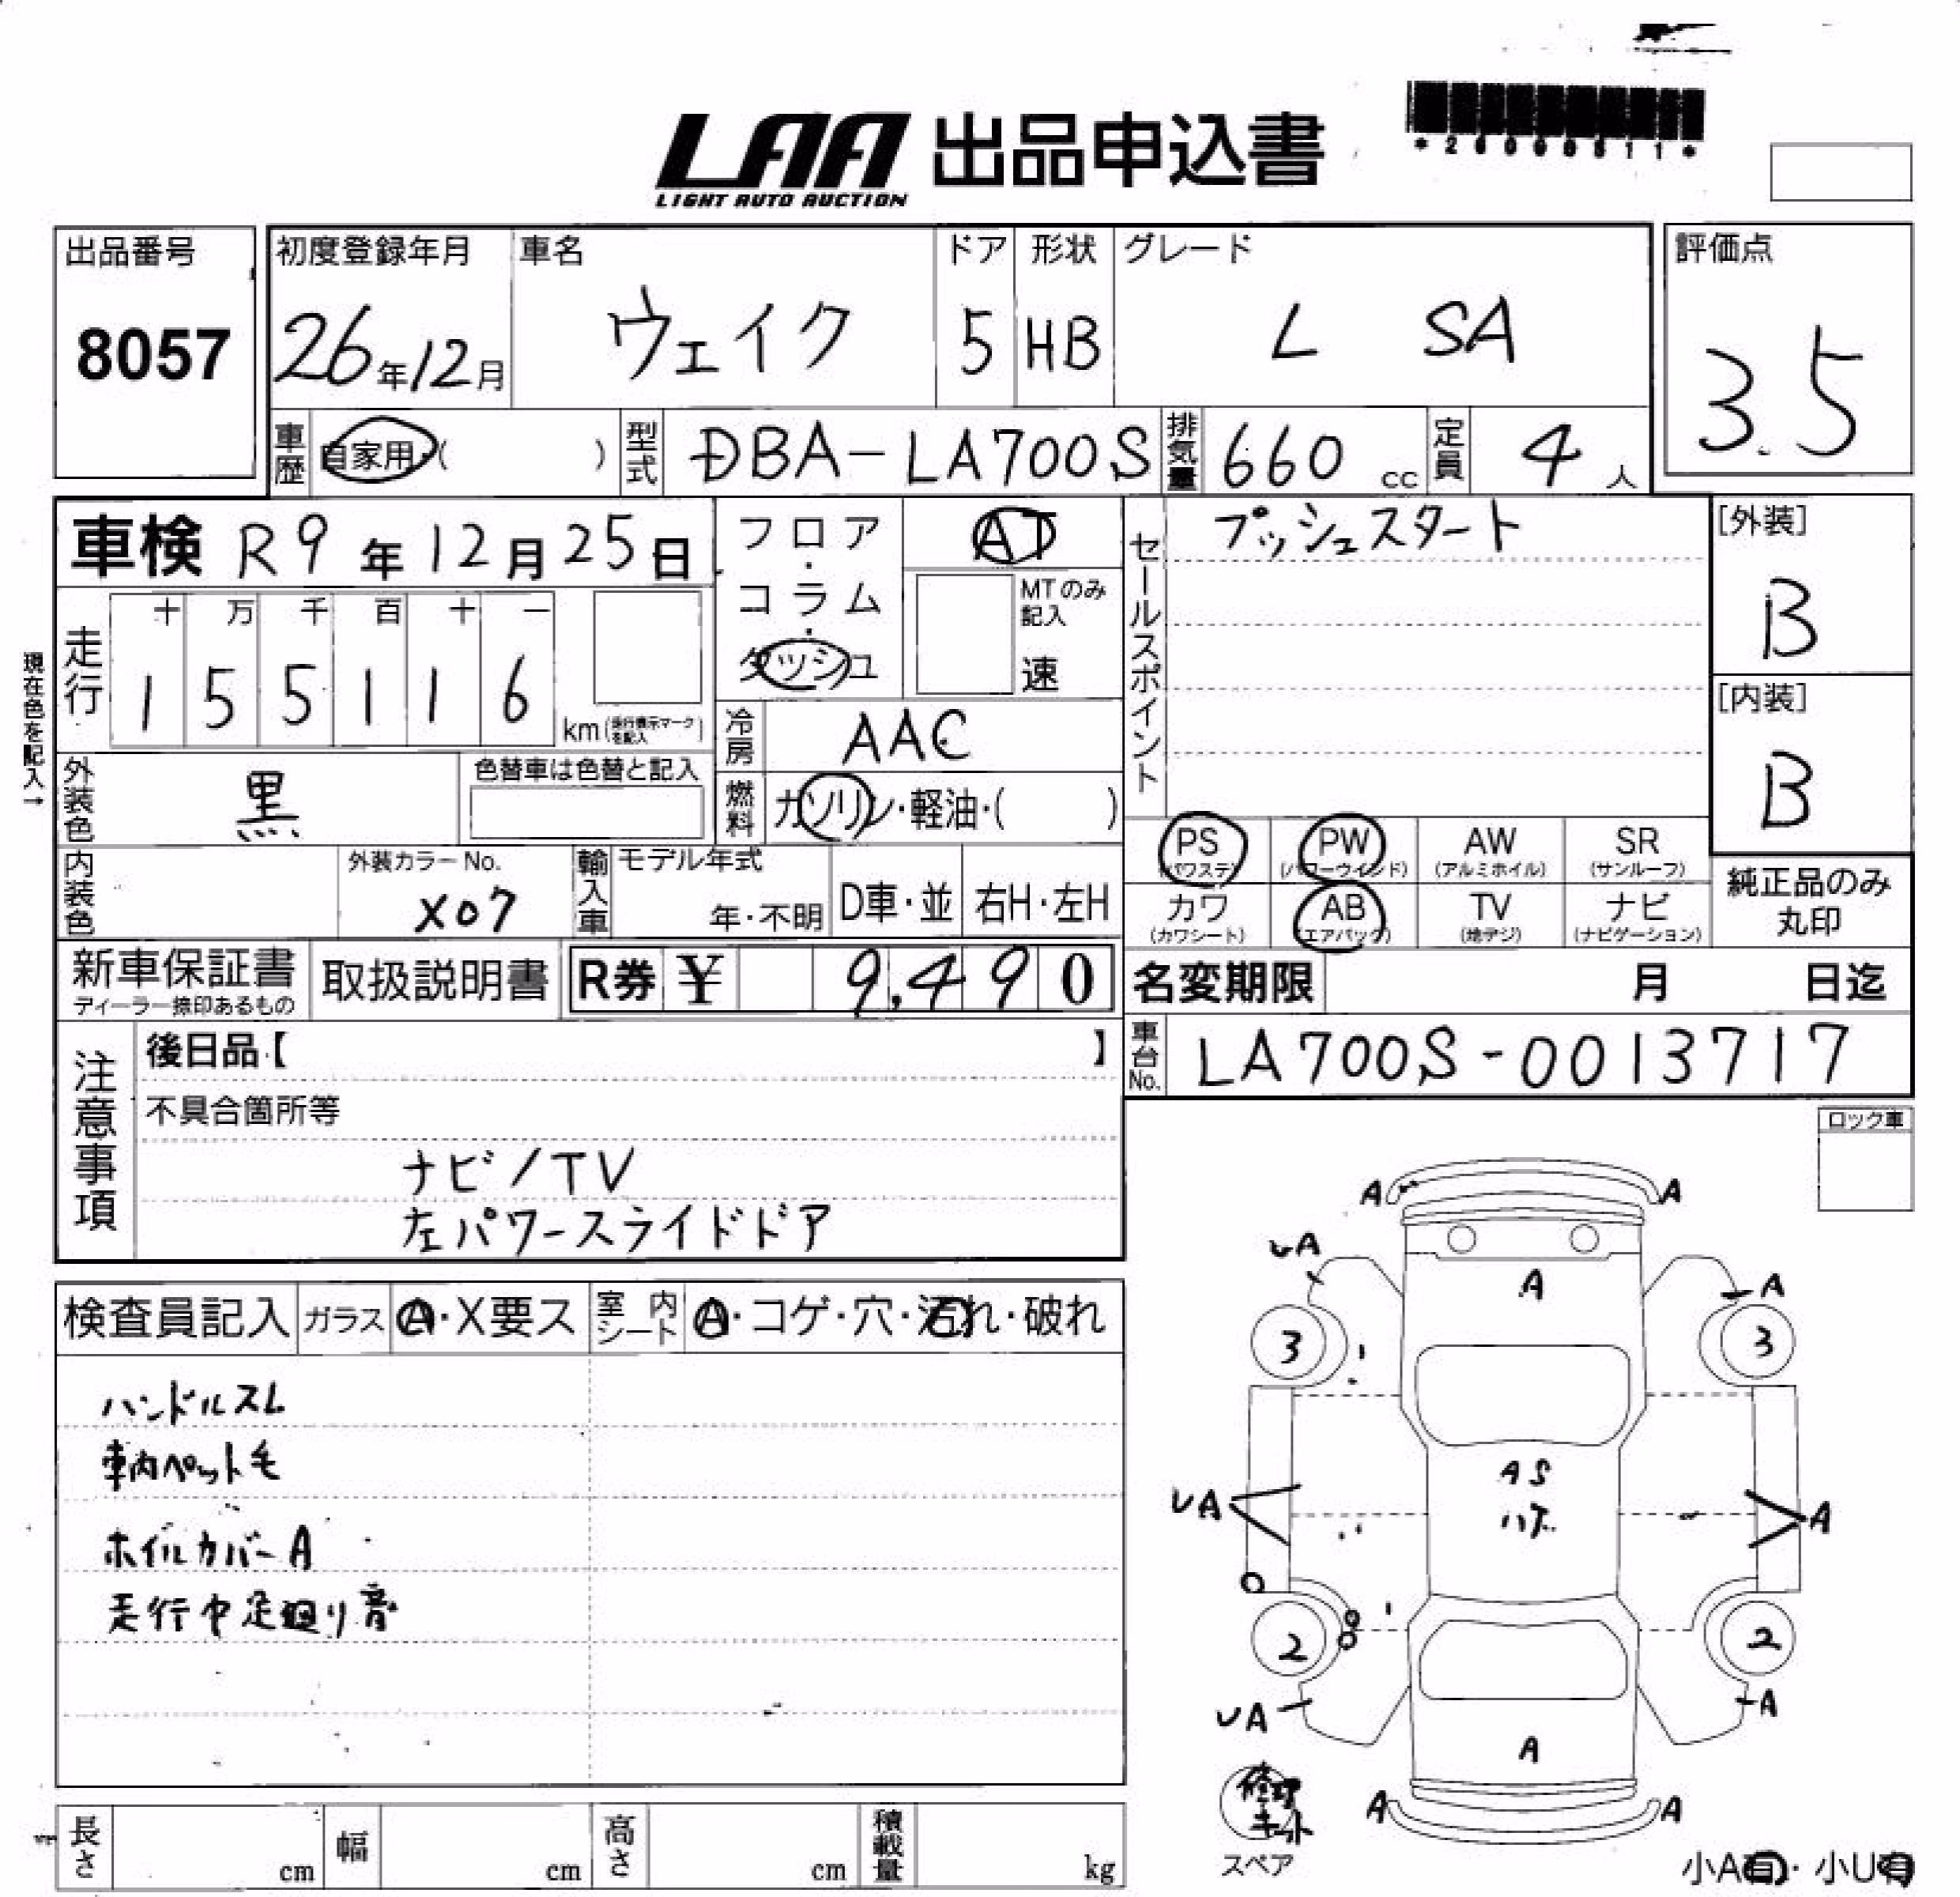 LAA 出品申込書
LIGHT AUTO AUCTION
出品番号 初度登録年月 車名 ドア 形状 グレード 評価点
8057 26年12月 ウェイク 5 HB L SA 3.5
車歴 自家用・( ) 型式 DBA-LA700S 排気量 660 cc 定員 4 人
車検 R9年12月25日
フロア・コラム・ダッシュ
AT
MTのみ記入
速
セールスポイント プッシュスタート
[外装]
B
[内装]
B
現在色を記入→
走行 十 万 千 百 十 一
1 5 5 1 1 6 km(走行表示マークを記入)
冷房 AAC
外装色 黒 色替車は色替と記入
燃料 ガソリン・軽油・( )
PS (パワステ) PW (パワーウインド) AW (アルミホイル) SR (サンルーフ)
カワ (カワシート) AB (エアバック) TV (地デジ) ナビ (ナビゲーション)
純正品のみ
丸印
内装色 外装カラーNo. X07 輸入車 モデル年式 年・不明 D車・並 右H・左H
新車保証書 取扱説明書 R券 ¥ 9,490
ディーラー捺印あるもの
名変期限 月 日迄
車台No. LA700S-0013717
注意事項
後日品【 】
不具合箇所等
ナビ/TV
左パワースライドドア
ロック車
検査員記入 ガラス A・X要ス 室内シート A・コゲ・穴・汚れ・破れ
ハンドルスレ
車内ペット毛
ホイルカバーA
走行中足廻り音
A A
UA A A
3 3
AS
UA ハゲ A
2 2
UA A
A
A A
修理キット
スペア
小A有・小U有
長さ cm 幅 cm 高さ cm 積載量 kg